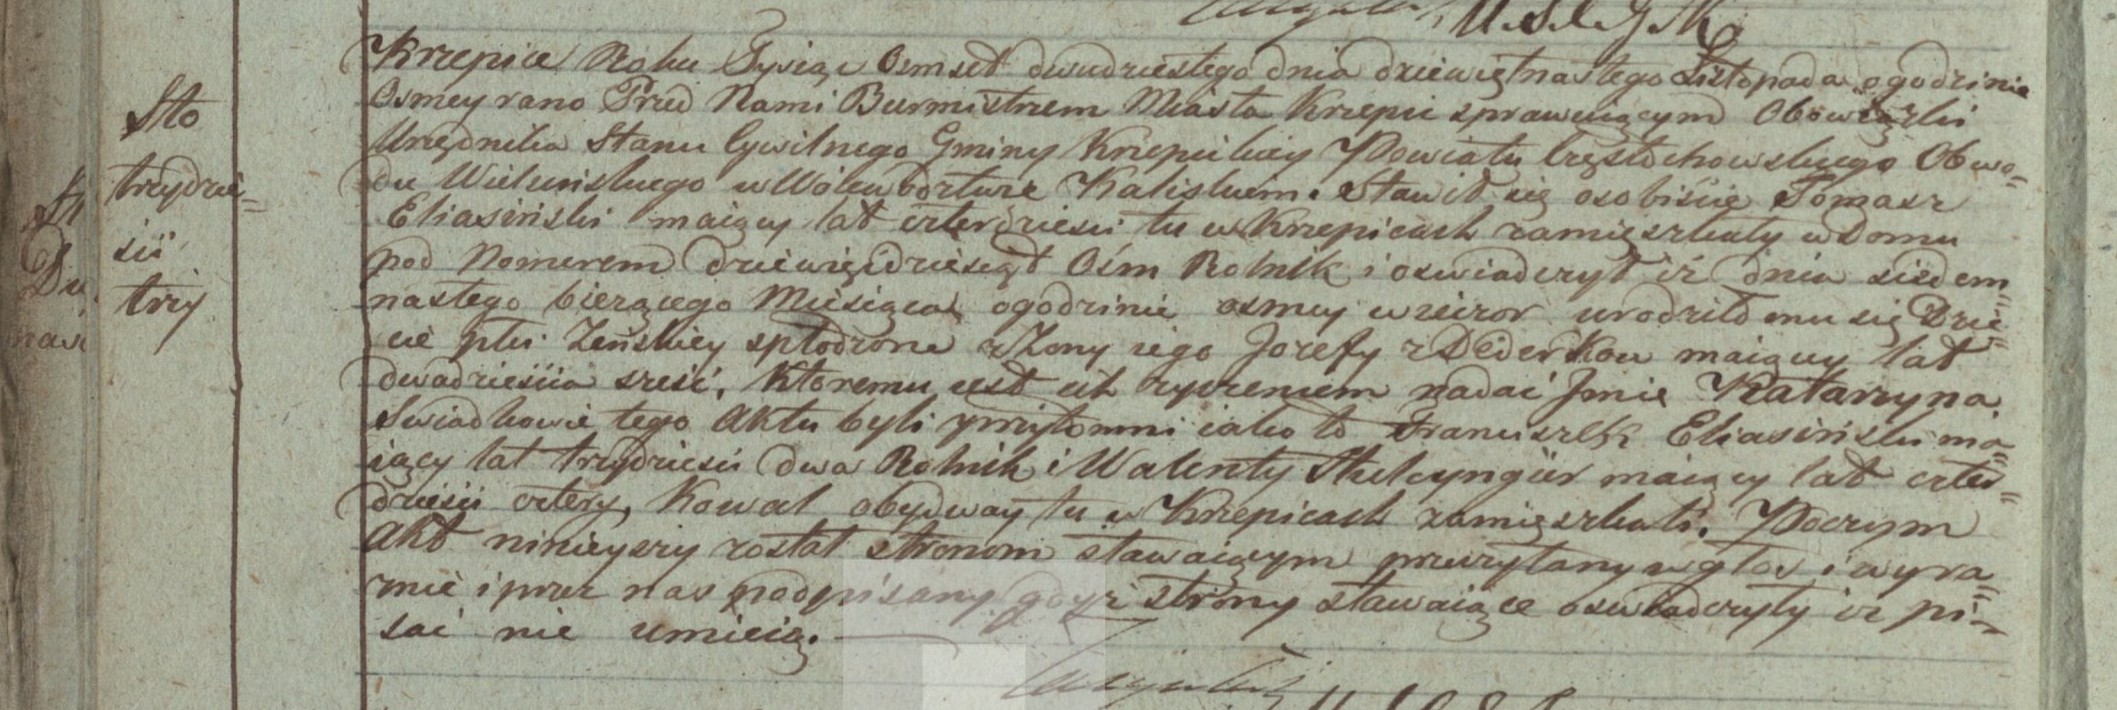 U.S.C.G.K.
Sto
trzydzie=
sci
trzy
Krzepice Roku Tysiąc Osmset dwudziestego dnia dziewiętnastego Listopada ogodzinie
Osmey rano Przed Nami Burmistrzem Miasta Krzepic sprawuiącym Obowiązki
Urzędnika Stanu Cywilnego Gminy Krzepickiey Powiatu Częstochowskiego Obwo=
du Wieluńskiego w Woiewodztwie Kaliskiem. Stawił się osobiście Tomasz
Eliasiński maiący lat czterdzieści tu w Krzepicach zamięszkały w Domu
pod Nomerem dziewięćdziesiąt Ośm Rolnik i oswiadczył iż dnia siedem=
nastego bierzącego Miesiąca ogodzinie osmey wieczor urodziło mu się Dzie=
cie płci Żeńskiey spłodzone z Żony iego Jozefy z Dederkow maiącey lat
dwadzieścia sześć, Ktoremu iest ich zyczeniem nadać Jmie Katarzyna.
Swiadkowie tego Aktu byli przytomni iako to Franciszek Eliasiński ma=
iący lat trzydzieści dwa Rolnik i Walenty maiący lat czter=
dzieści cztery, Kowal obydway tu w Krzepicach zamięszkali. Poczym
Akt ninieyszy został stronom stawaiącym przeczytany w głos i wyra=
znie i przez nas podpisany gdyż strony stawaiące oswiadczyły iz pi=
sać nie umieią.